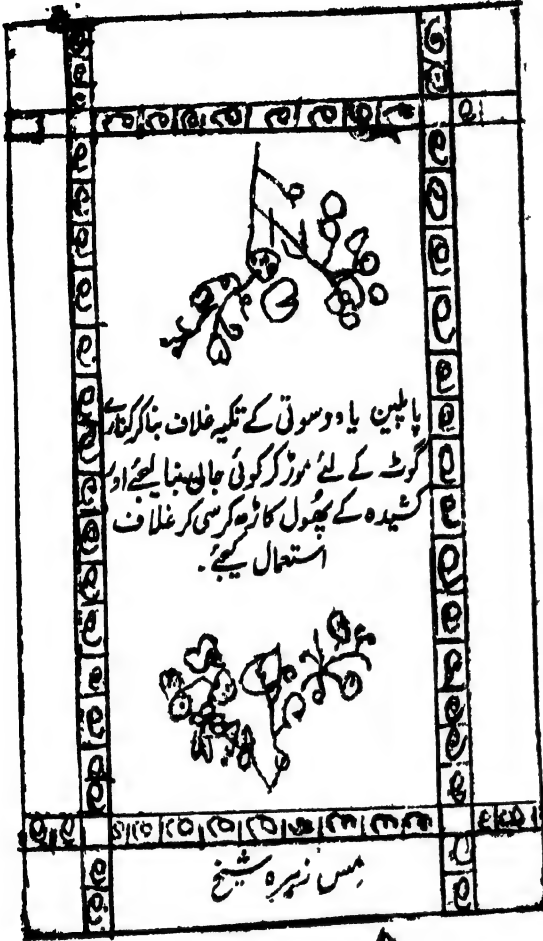 پاپلین یا دوسوتی کے تکیہ غلاف بنا کر کنارے
گوٹ کے لئے موڑ کر کوئی جالی بنا لیجئے اور
کشیدہ کے پھول کاڑھ کر سی کر غلاف
استعمال کیجئے۔
مس زہرہ شیخ